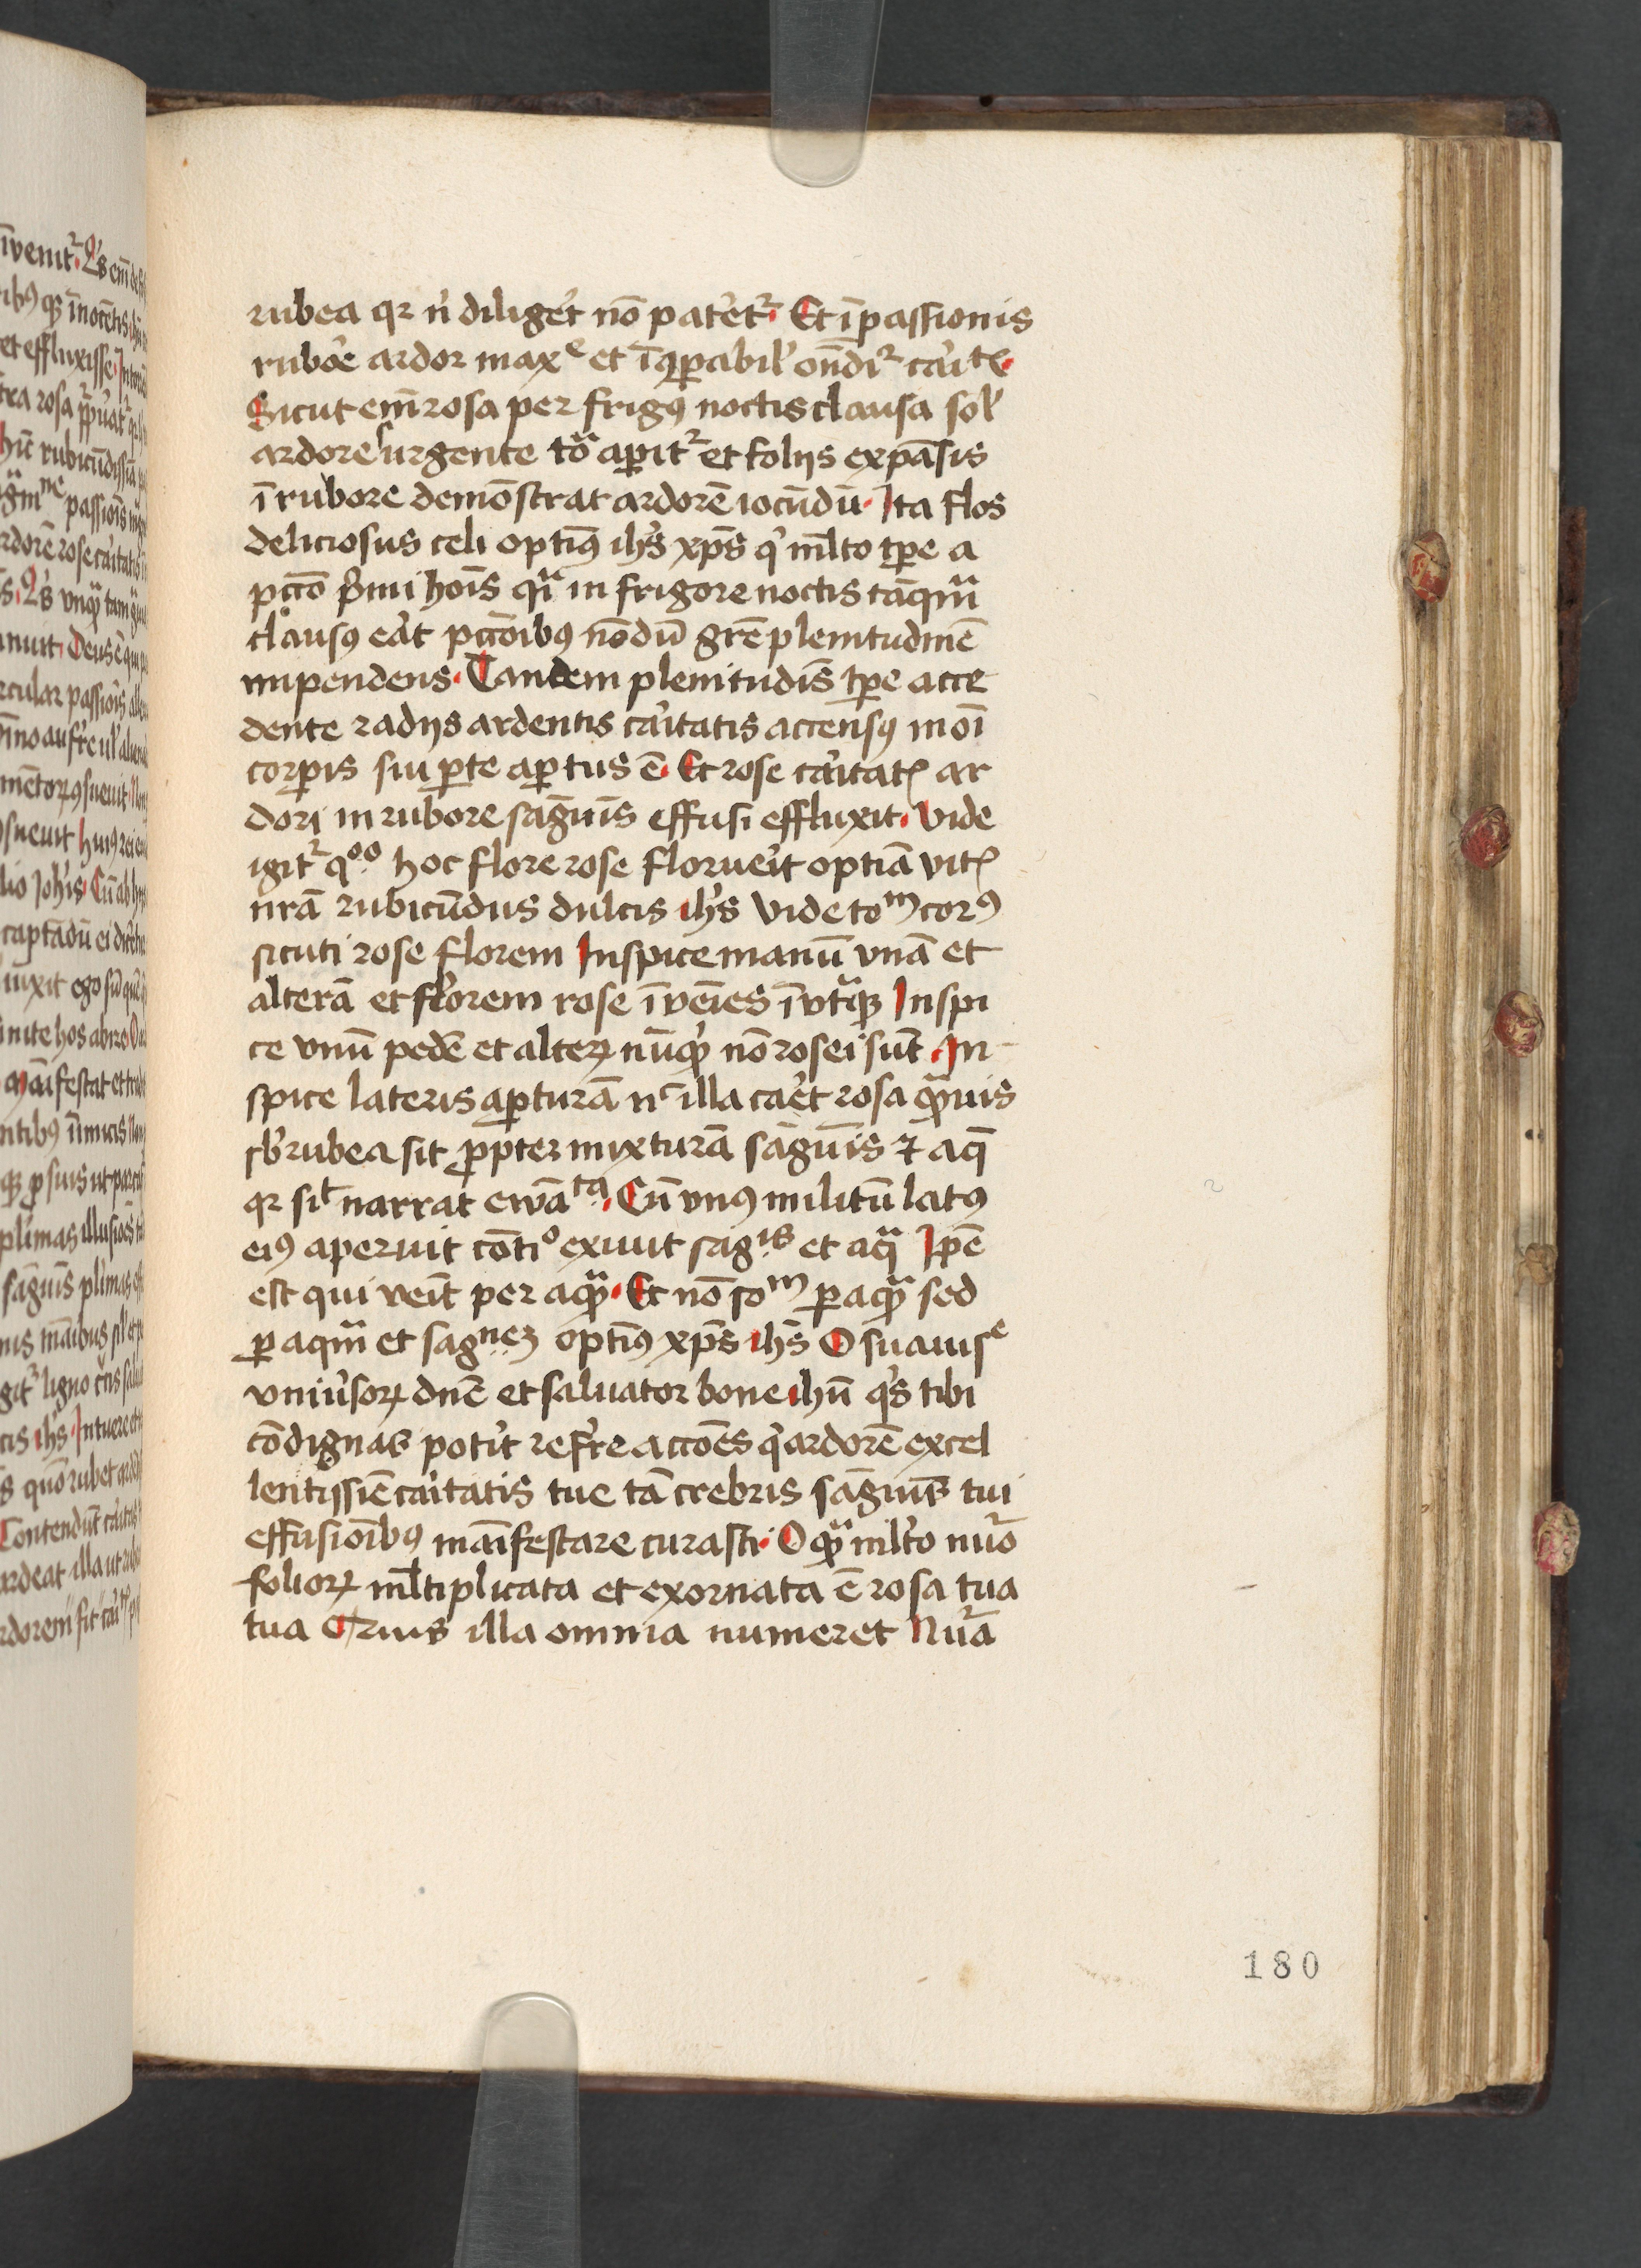 rubea qr n̄ diliger̄t nō pateret᷑. Et ī passionis
rubore ardor maxᵉ et īꝯparabil̓ ondi᷑ cāitꝭ.
Sicut em̄ rosa per frigꝰ noctis clausa sol̓
ardore surgente tōᵃ aperit᷑ et folijs expāsis
ī rubore demōstrat ardorē iocūdū. Ita flos
deliciosus celi optimꝰ ih̄s xp̄s qͥ ml̄to tp̄e a
pccō pͥmi hoīs qͣi in frigore noctis tāqͣm
clausꝰ erat pccōibꝰ nōdū gr̄e plenitudinē
impendens. Tandem plenitudīs tp̄e acce
dente radijs ardentis cāitatis accensꝰ in oī
corꝑis sui ꝑte aꝑtus ē. Et rose cāitatꝭ ar
dori in rubore sāguīs effusi effluxit. Vide
igit᷑ qͦͦ hoc flore rose floruerit optīa vitꝭ
nr̄a rubicūdus dulcis ih̄s Vide toᵐ corꝰ
sicuti rose florem Inspice manū vnā et
alterā et florem rose īveīes ī vtͣqꝫ Inspi
ce vnū pedē et alterꝝ nūqͥd nō rosei sūt In
spice lateris aꝑturā nᶜ illa caret rosa qͣmuis
sb̓rubea sit ꝓpter mixturā sāguīs ⁊ aq̄
qr sic̄ narrat ewāᵗᵃ. Cū vnꝰ militū latꝰ
eiꝰ aperuit cōtiᵒ exiuit sāgⁱˢ et aqͣ Ip̄e
est qui veīt per aqͣm. Et nō soᵐ ꝑ aqͣm sed
ꝑ aqͣm et sagⁿᵉᵐ optimꝰ xp̄s ih̄s O suauisᵉ
vniūsoꝝ dn̄e et saluator bone ih̄u qͥs tibi
cōdignas poterit refr̄e accōes qͥ ardorē excel
lentissīe cāitatis tue tā crebris sāguīs tui
effusiōibꝰ maīfestare curasti. O qͣm ml̄to nūo
folioꝝ ml̄tiplicata et exornata ē rosa tua
tua Quis illa omnia numeret Nūa
180